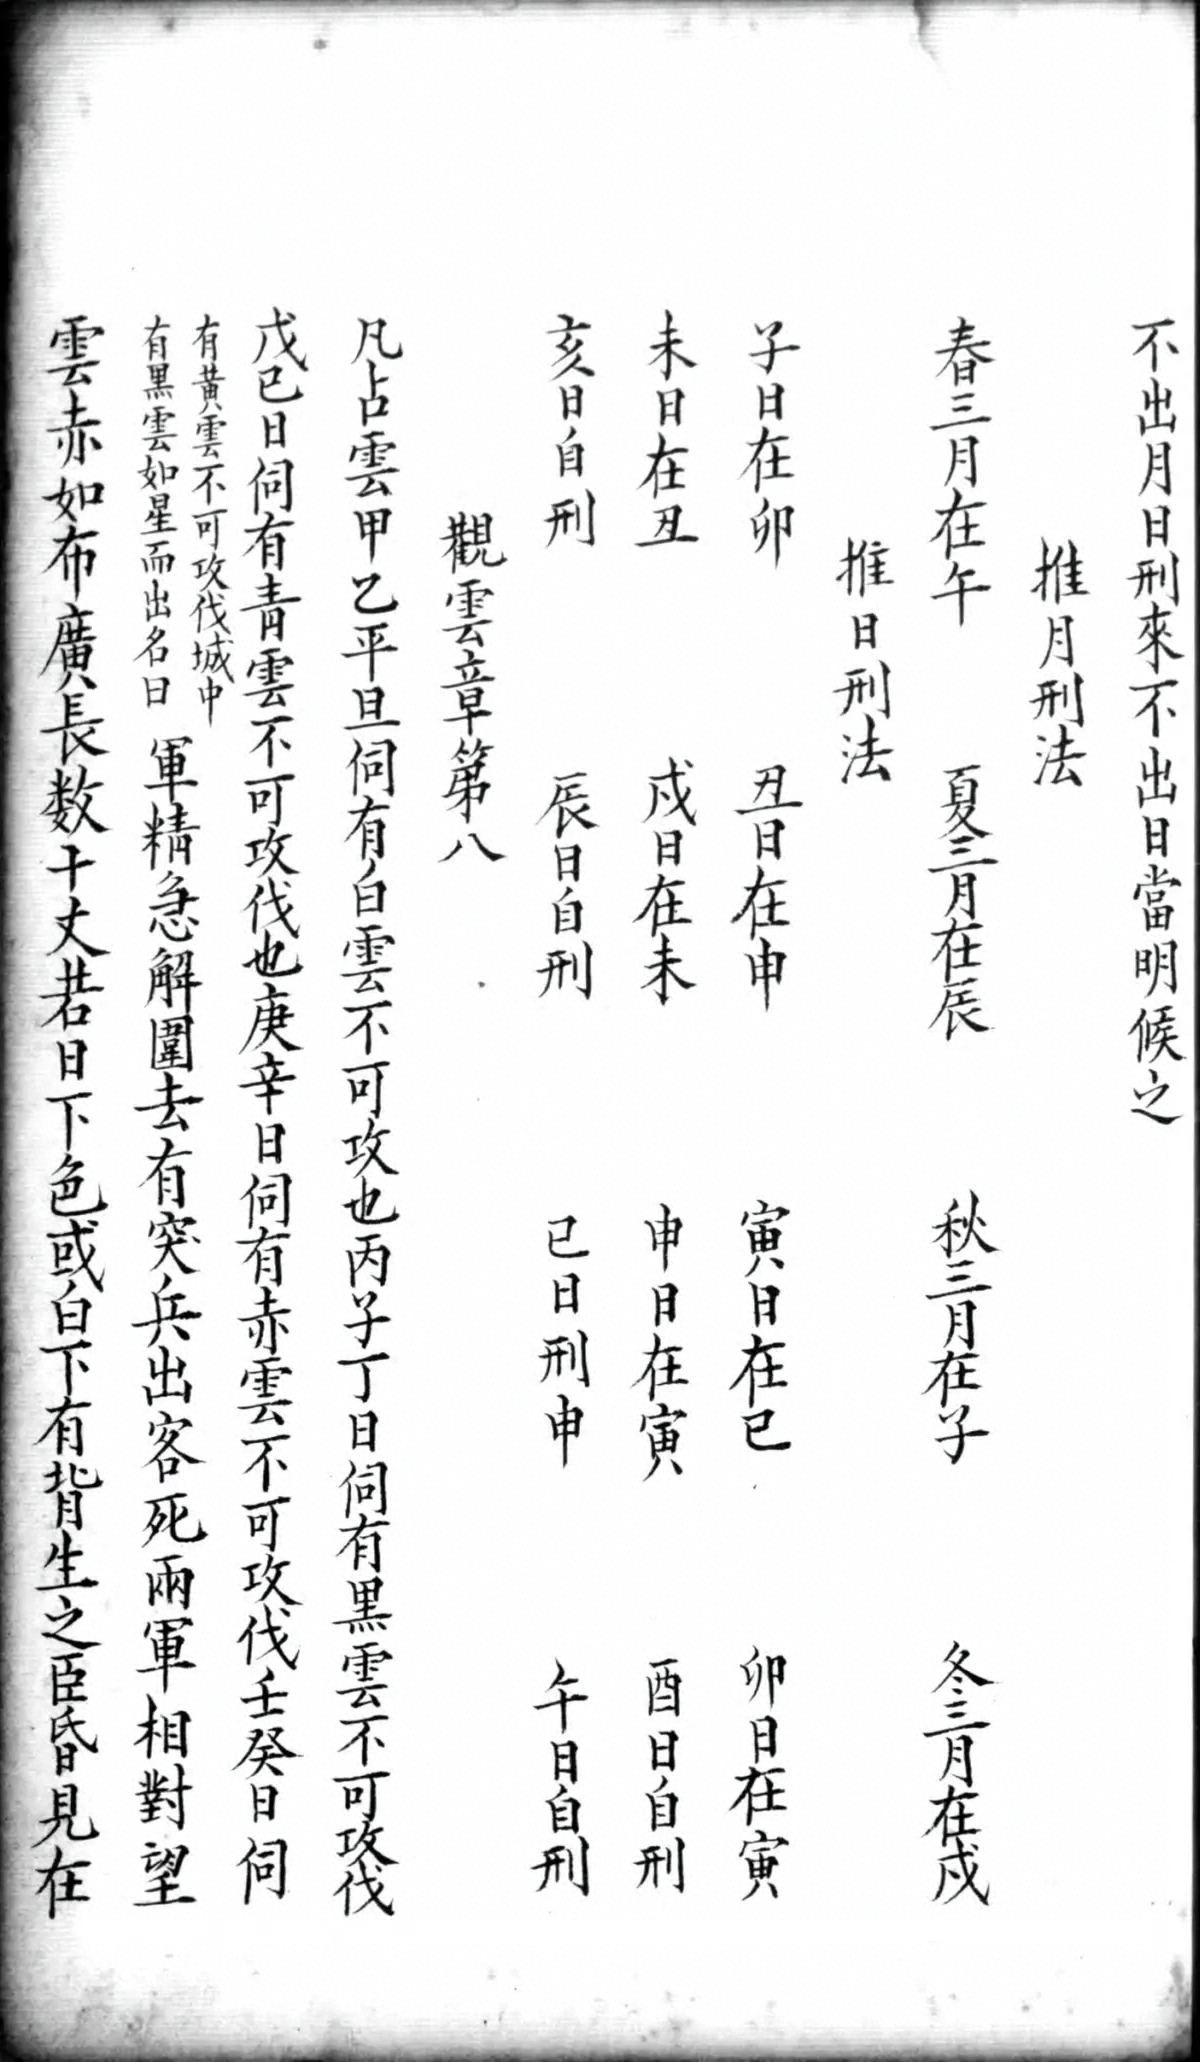 不出月日刑來不出日當明候之
推月刑法
春三月在午 夏三月在辰 秋三月在子 冬三月在戍
推日刑法
子日在卯 丑日在申 寅日在巳 卯日在寅
未日在丑 戍日在未 申日在寅 酉日自刑
亥日自刑 辰日自刑 巳日刑申 午日自刑
觀雲章第八
凡占雲甲乙平旦伺有白雲不可攻也丙子丁日伺有黑雲不可攻伐
戊巳日伺有青雲不可攻伐也庚辛日伺有赤雲不可攻伐壬癸日伺
有黃雲不可攻伐城中
有黑雲如星而出名曰
軍精急解圍去有突兵出客死兩軍相對望
雲赤如布廣長数十丈若日下色或白下有背生之臣昏見在